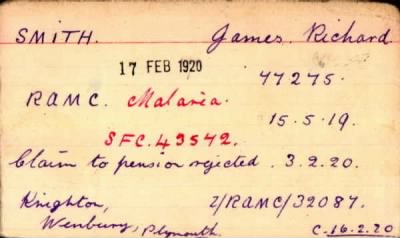 SMITH. James. Richard
17 FEB 1920
47275.
RAMC. Malaria.
15.5.19.
SFC. 43542.
Claim to pension rejected. 3.2.20.
Knighton, 2/RAMC/32087.
Wenbury, Plymouth. C.16.2.20